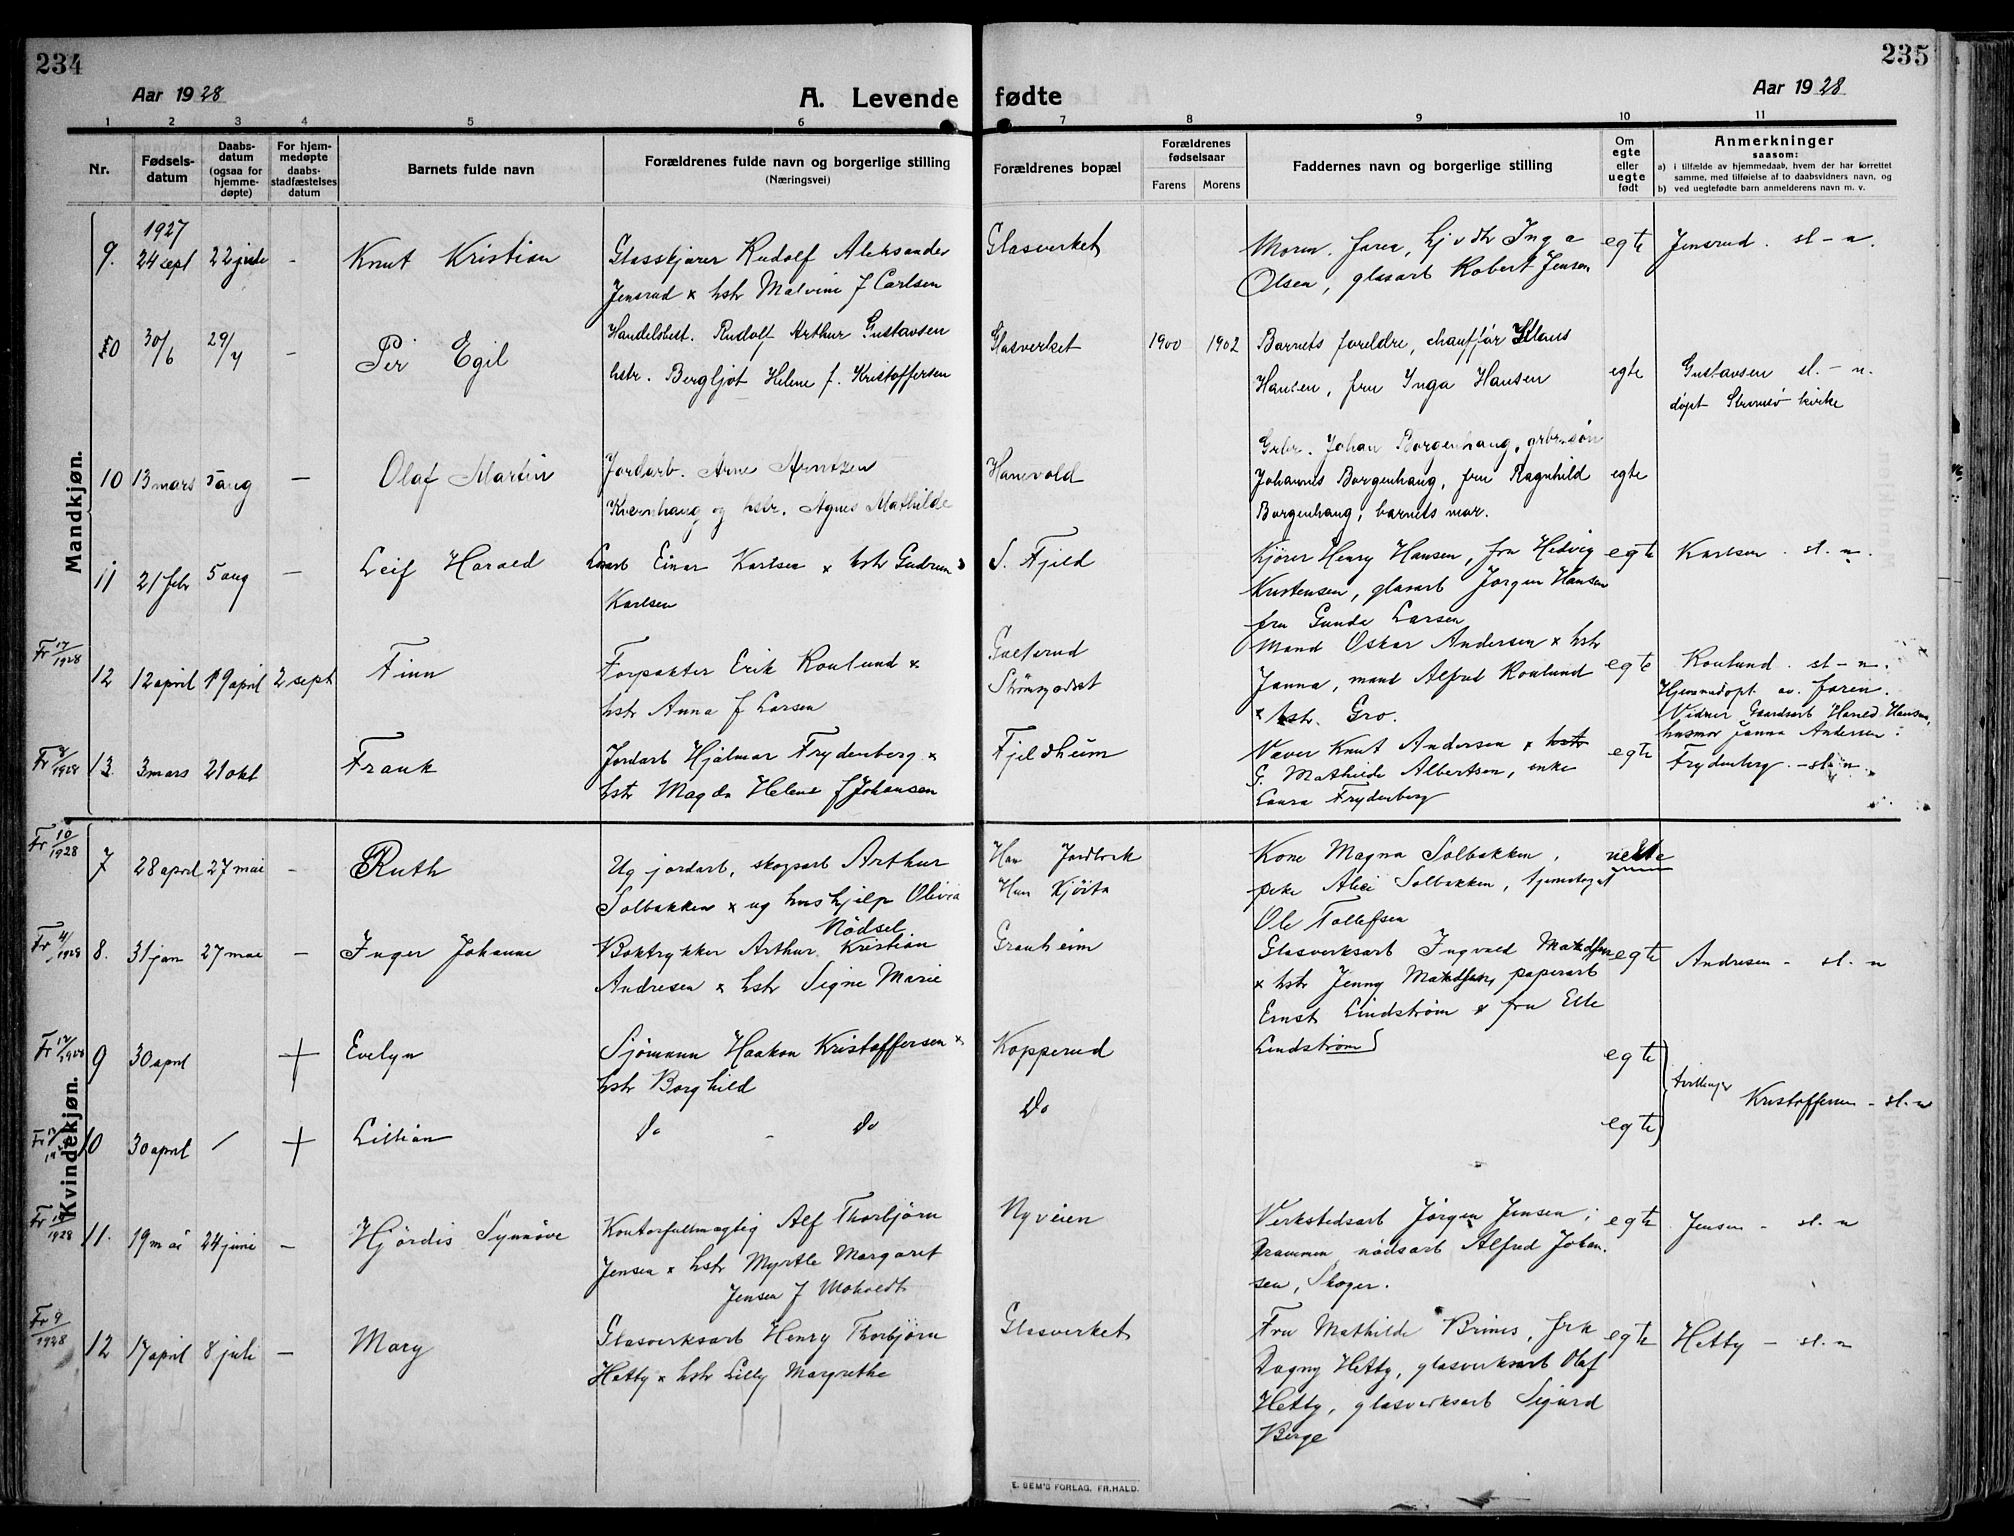 234
Aar 1928
A. Levende
1 2 3 4 5 6
Nr.
Fødsels-
datum
Daabs-
datum
(ogsaa for
hjemme-
døpte)
For hjem-
medøpte
daabs-
stadfæstelses
datum
Barnets fulde navn
Forældrenes fulde navn og borgerlige stilling
(Næringsvei)
Mandkjøn.
1927
9. 24 sept 22 - Knut Kristian
Glasskjærer Rudolf Aleksander
Jensrud x hstr Malvine f Carlsen
10 30/6 29/7 - Per Egil
Handelsbest. Rudolf Arthur Gustavsen
hstr. Bergljot Helene f. Kristoffersen
10 13 mars 5 aug - Olaf Martin
Jordarb. Arne Arntzen
Kvernhaug og hstr. Agnes Mathilde
11 21 febr 5 aug - Leif Harald
Einar Karlsen x hstr Gudrun
Karlsen
Fr 17/1928
12 12 april 19 april 2 sept Finn
Forpakter Erik Roulund x
hstr Anna f Larsen
Fr 8/1928
13. 3 mars 21 okt Frank
Jordarb Hjalmar Frydenberg x
hstr Magda Helene f Johansen
Kvindekjøn.
Fr 10/1928
7 28 april 27 mai - Ruth
Ug jordarb, skogsarb Arthur
Solbakken x ug hushjelp Olivia
Nødsel
Fr 4/1928
8. 31 jan 27 mai - Inger Johanne
Boktrykker Arthur Kristian
Andresen x hstr Signe Marie
Fr 12/1928
9 30 april + Evelyn
Sjømann Haakon Kristoffersen x
hstr Borghild
10 30 april / + Lillian
Do - Do
Fr 14/1928
11. 19 mai 24 juni - Hjördis Synnöve
Kontorfullmægtig Alf Thorbjørn
Jensen x hstr Myrtle Margaret
Jensen f Moholdt
Fr 9/1928
12 17 april 8 juli - Mary
Glasverksarb Henry Thorbjørn
Hetty x hstr Lilly Margrethe
235
Aar 1928
fødte
7 8 9 10 11
Forældrenes bopæl
Forældrenes
fødselsaar
Farens Morens
Faddernes navn og borgerlige stilling
Om
egte
eller
uegte
født
Anmerkninger
saasom:
a) i tilfælde av hjemmedaab, hvem der har forrettet
samme, med tilføielse af to daabsvidners navn, og
b) ved uegtefødte barn anmelderens navn m. v.
Glasverket
Moren, faren, Inga
Olsen, glasarb Robert Jensen
egte Jensrud. sl - n.
Glasverket 1900 1902
Barnets foreldre, chauffør Klaus
Hansen, fru Inga Hansen
egte Gustavsen sl. - n.
døpt Strømsø kirke
Hanevold
Grbr. Johan Borgenhaug, grbr.søn
Johannes Borgenhaug, fru Ragnhild
Borgenhaug, barnets mor.
egte
S. Fjeld
Kjører Henry Hansen, fru Hedvig
Kristensen, glasarb Jørgen Hansen
fru Gunda Larsen
egte Karlsen. sl. n.
Galterud
Strømsgodset
Mand Oskar Andersen x hstr
Janna, mand Alfred Roulund
x hstr. Gro.
egte Roulund. sl - n.
Hjemmedøpt av faren.
Vidner Gaardsarb Harald Hansen,
husmor Janna Andersen.
Fjeldheim
Væver Knut Andersen x hstr
G. Mathilde Albertsen, enke
Laura Frydenberg
egte Frydenberg. - sl. n.
Han Jordbrek
Hun Kjösta
Kone Magna Solbakken,
pike Alice Solbakken,
Ole Tollefsen
uekte
Granheim
Glasverksarb Ingvald
x hstr Jenny papirarb
Ernst Lindstrøm x fru Elle
Lindstrøm
egte Andresen - sl. n
Kopperud
egte
Do
egte
tvillinger
Kristoffersen - sl. n
Nyveien
Verkstedsarb Jørgen Jensen,
Drammen, Alfred Johan-
sen, Skoger.
egte Jensen - sl. n
Glasverket
Fru Mathilde Brines, frk
Dagny Hetty, glasverksarb Olaf
Hetty, glasverksarb Sigurd
Berge
egte Hetty - sl. n
E. SEM'S FORLAG, FR.HALD.